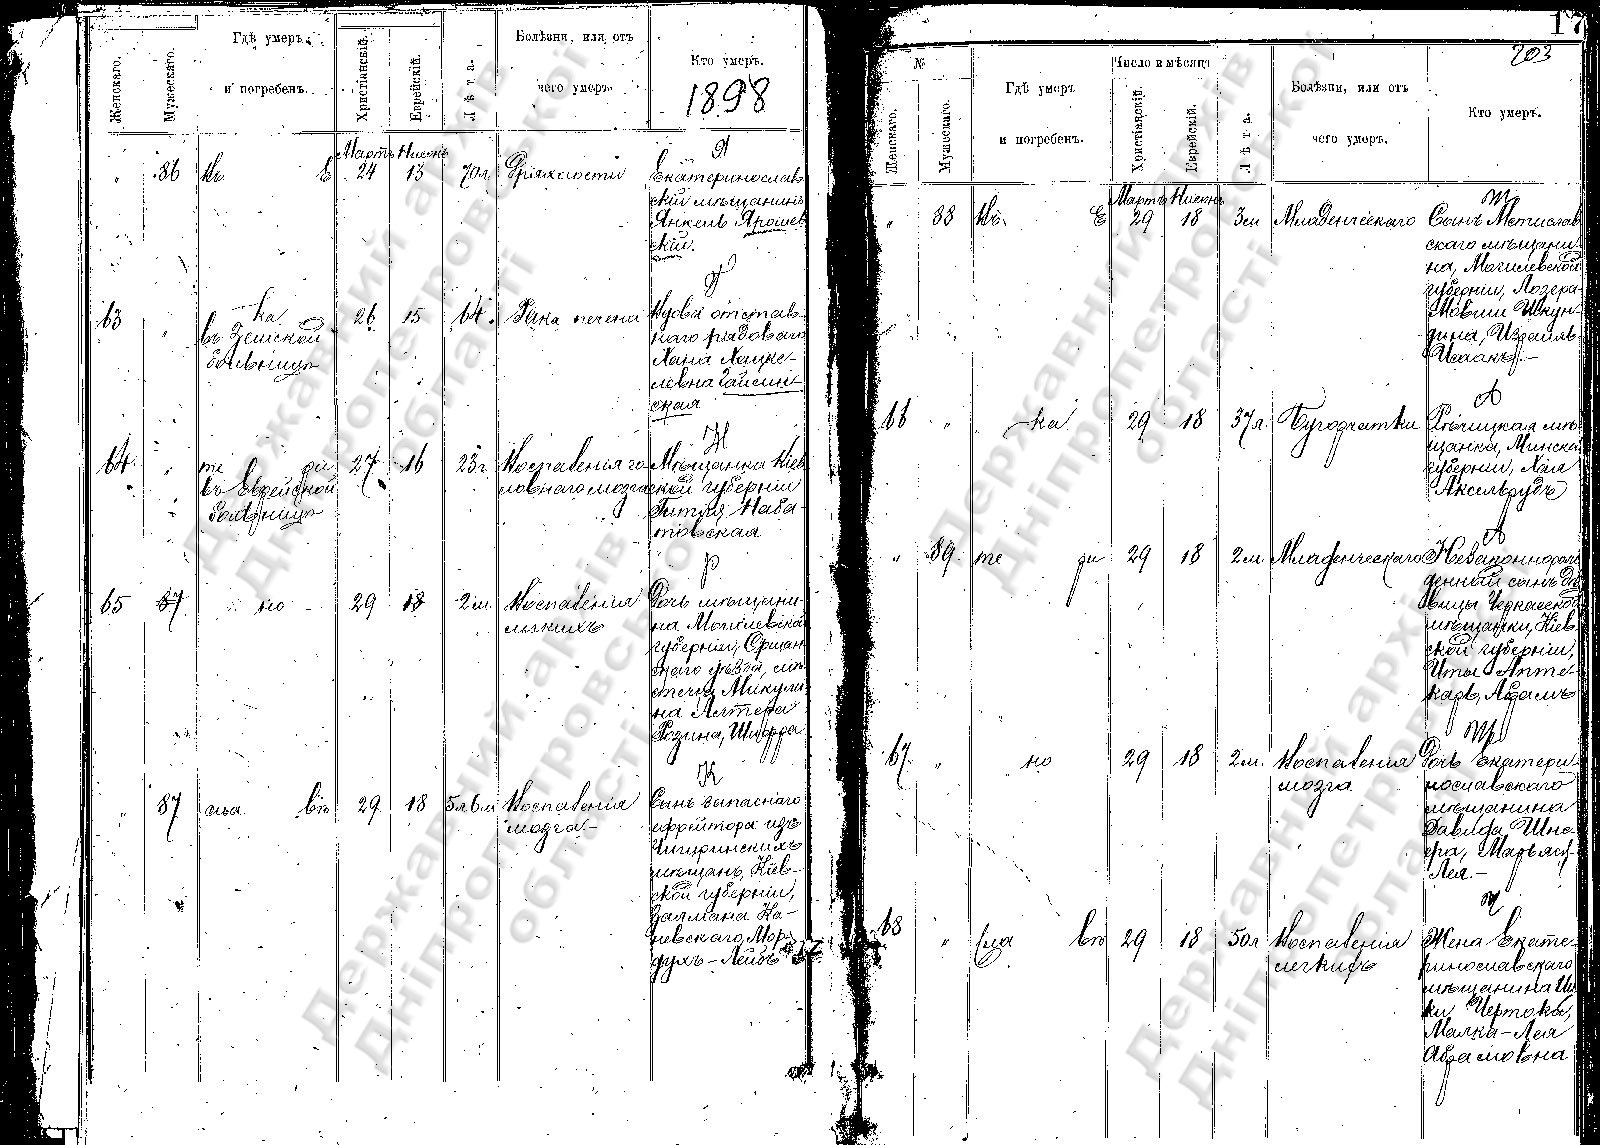 Женскаго.
Мужескаго.
Гдѣ умеръ
и погребенъ.
Христіанскій.
Еврейскій.
Лѣта.
Болѣзни, или отъ
чего умеръ.
Кто умеръ.
1898
Мартъ Нисонъ
Я
86 Въ Е 24 13 70 л. Дряхлости Екатеринослав
скій мѣщанинъ
Янкель Ярошев
скій.
Г
63 ка 26 15 64. Рака печени Вдова отстав
въ Земской
наго рядового
больницѣ
Хана Хацке-
левна Гайсин-
ская
Н
64. те ри 27 16 23 г. Воспаленія го Мѣщанка Кіев
въ Еврейской ловного мозга ской губерніи
больницѣ
Гитля Наба-
товская
Р
65 87 но 29 18 2 м. Воспаленія Дочь мѣщани-
легкихъ на Могилевской
губерніи, Оршан
скаго уѣзда, мѣ
стечка Микули
на Алтера
Розина, Шифра
К
87 сла вѣ 29 18 5 л 6 м Воспаленія Сынъ запаснаго
мозга.- ефрейтора изъ
Чигиринскихъ
мѣщанъ, Кіев-
ской губерніи,
Залмана Ка-
невскаго, Мор-
духъ-Лейбъ
17
203
№
Женскаго.
Мужескаго.
Гдѣ умеръ
и погребенъ.
Число и мѣсяцъ
Христіанскій.
Еврейскій.
Лѣта.
Болѣзни, или отъ
чего умеръ.
Кто умеръ.
Мартъ Нисонъ
Ш
88 Въ Е 29 18 3 м Младенческаго Сынъ Мстислав
скаго мѣщани
на, Могилевской
губерніи, Лозера-
Мовши Шкун-
дина, Израиль
Исаакъ.-
А
66 ка 29 18 37 л. Бугорчатки Рѣчицкая мѣ
щанка, Минской
губерніи, Хая
Аксельрудъ
А
89. те ри 29 18 2 м Младенческаго Незаконнорож
денный сынъ дѣ
вицы Черкасской
мѣщанки, Кіев
ской губерніи,
Иты Апте-
карь, Абрамъ
Ш
67. но 29 18 2 м. Воспаленія Дочь Екатери
мозга нославскаго
мѣщанина
Давида Шне-
ера, Марьяся-
Лея.-
Ч
68 сла вѣ 29 18 50 л Воспаленія Жена Екате-
легкихъ ринославскаго
мѣщанина Иц
ки Чертока,
Малка-Лея
Абрамовна
Державний архів
Дніпропетровської
області